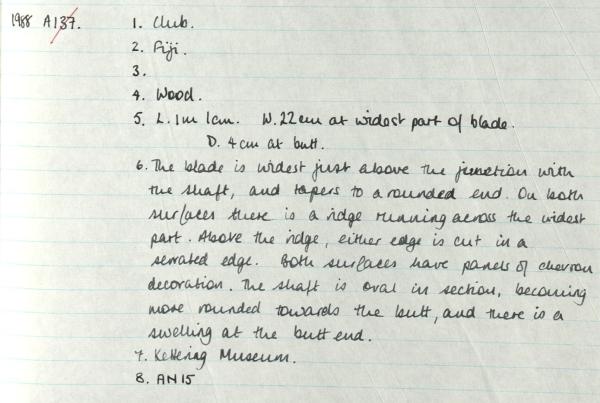 1988 A137. 1. Club.
2. Fiji.
3.
4. Wood.
5. L. 1m 1cm. W. 22cm at widest part of blade.
D. 4cm at butt.
6. The blade is widest just above the junction with
the shaft, and tapers to a rounded end. On both
surfaces there is a ridge running across the widest
part. Above the ridge, either edge is cut in a
serrated edge. Both surfaces have panels of chevron
decoration. The shaft is oval in section, becoming
more rounded towards the butt, and there is a
swelling at the butt end.
7. Kettering Museum.
8. AN15